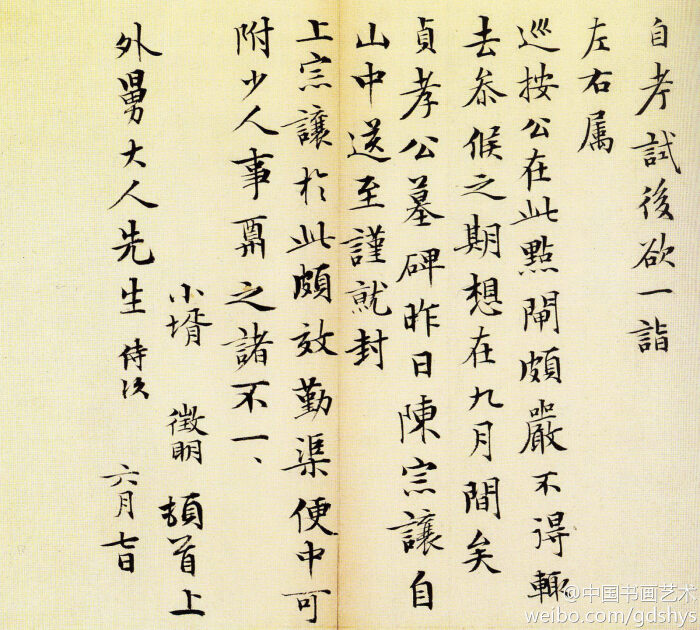 自考試後欲一詣
左右属
巡按公在此點閘頗嚴不得輙
去叅候之期想在九月間矣
貞孝公墓碑昨日陳宗讓自
山中送至謹就封
上宗讓於此頗效勤渠便中可
附少人事鬻之諸不一、
小壻 徵明 頓首上
外舅大人先生 侍次
六月七日
@中国书画艺术
weibo.com/gdshys